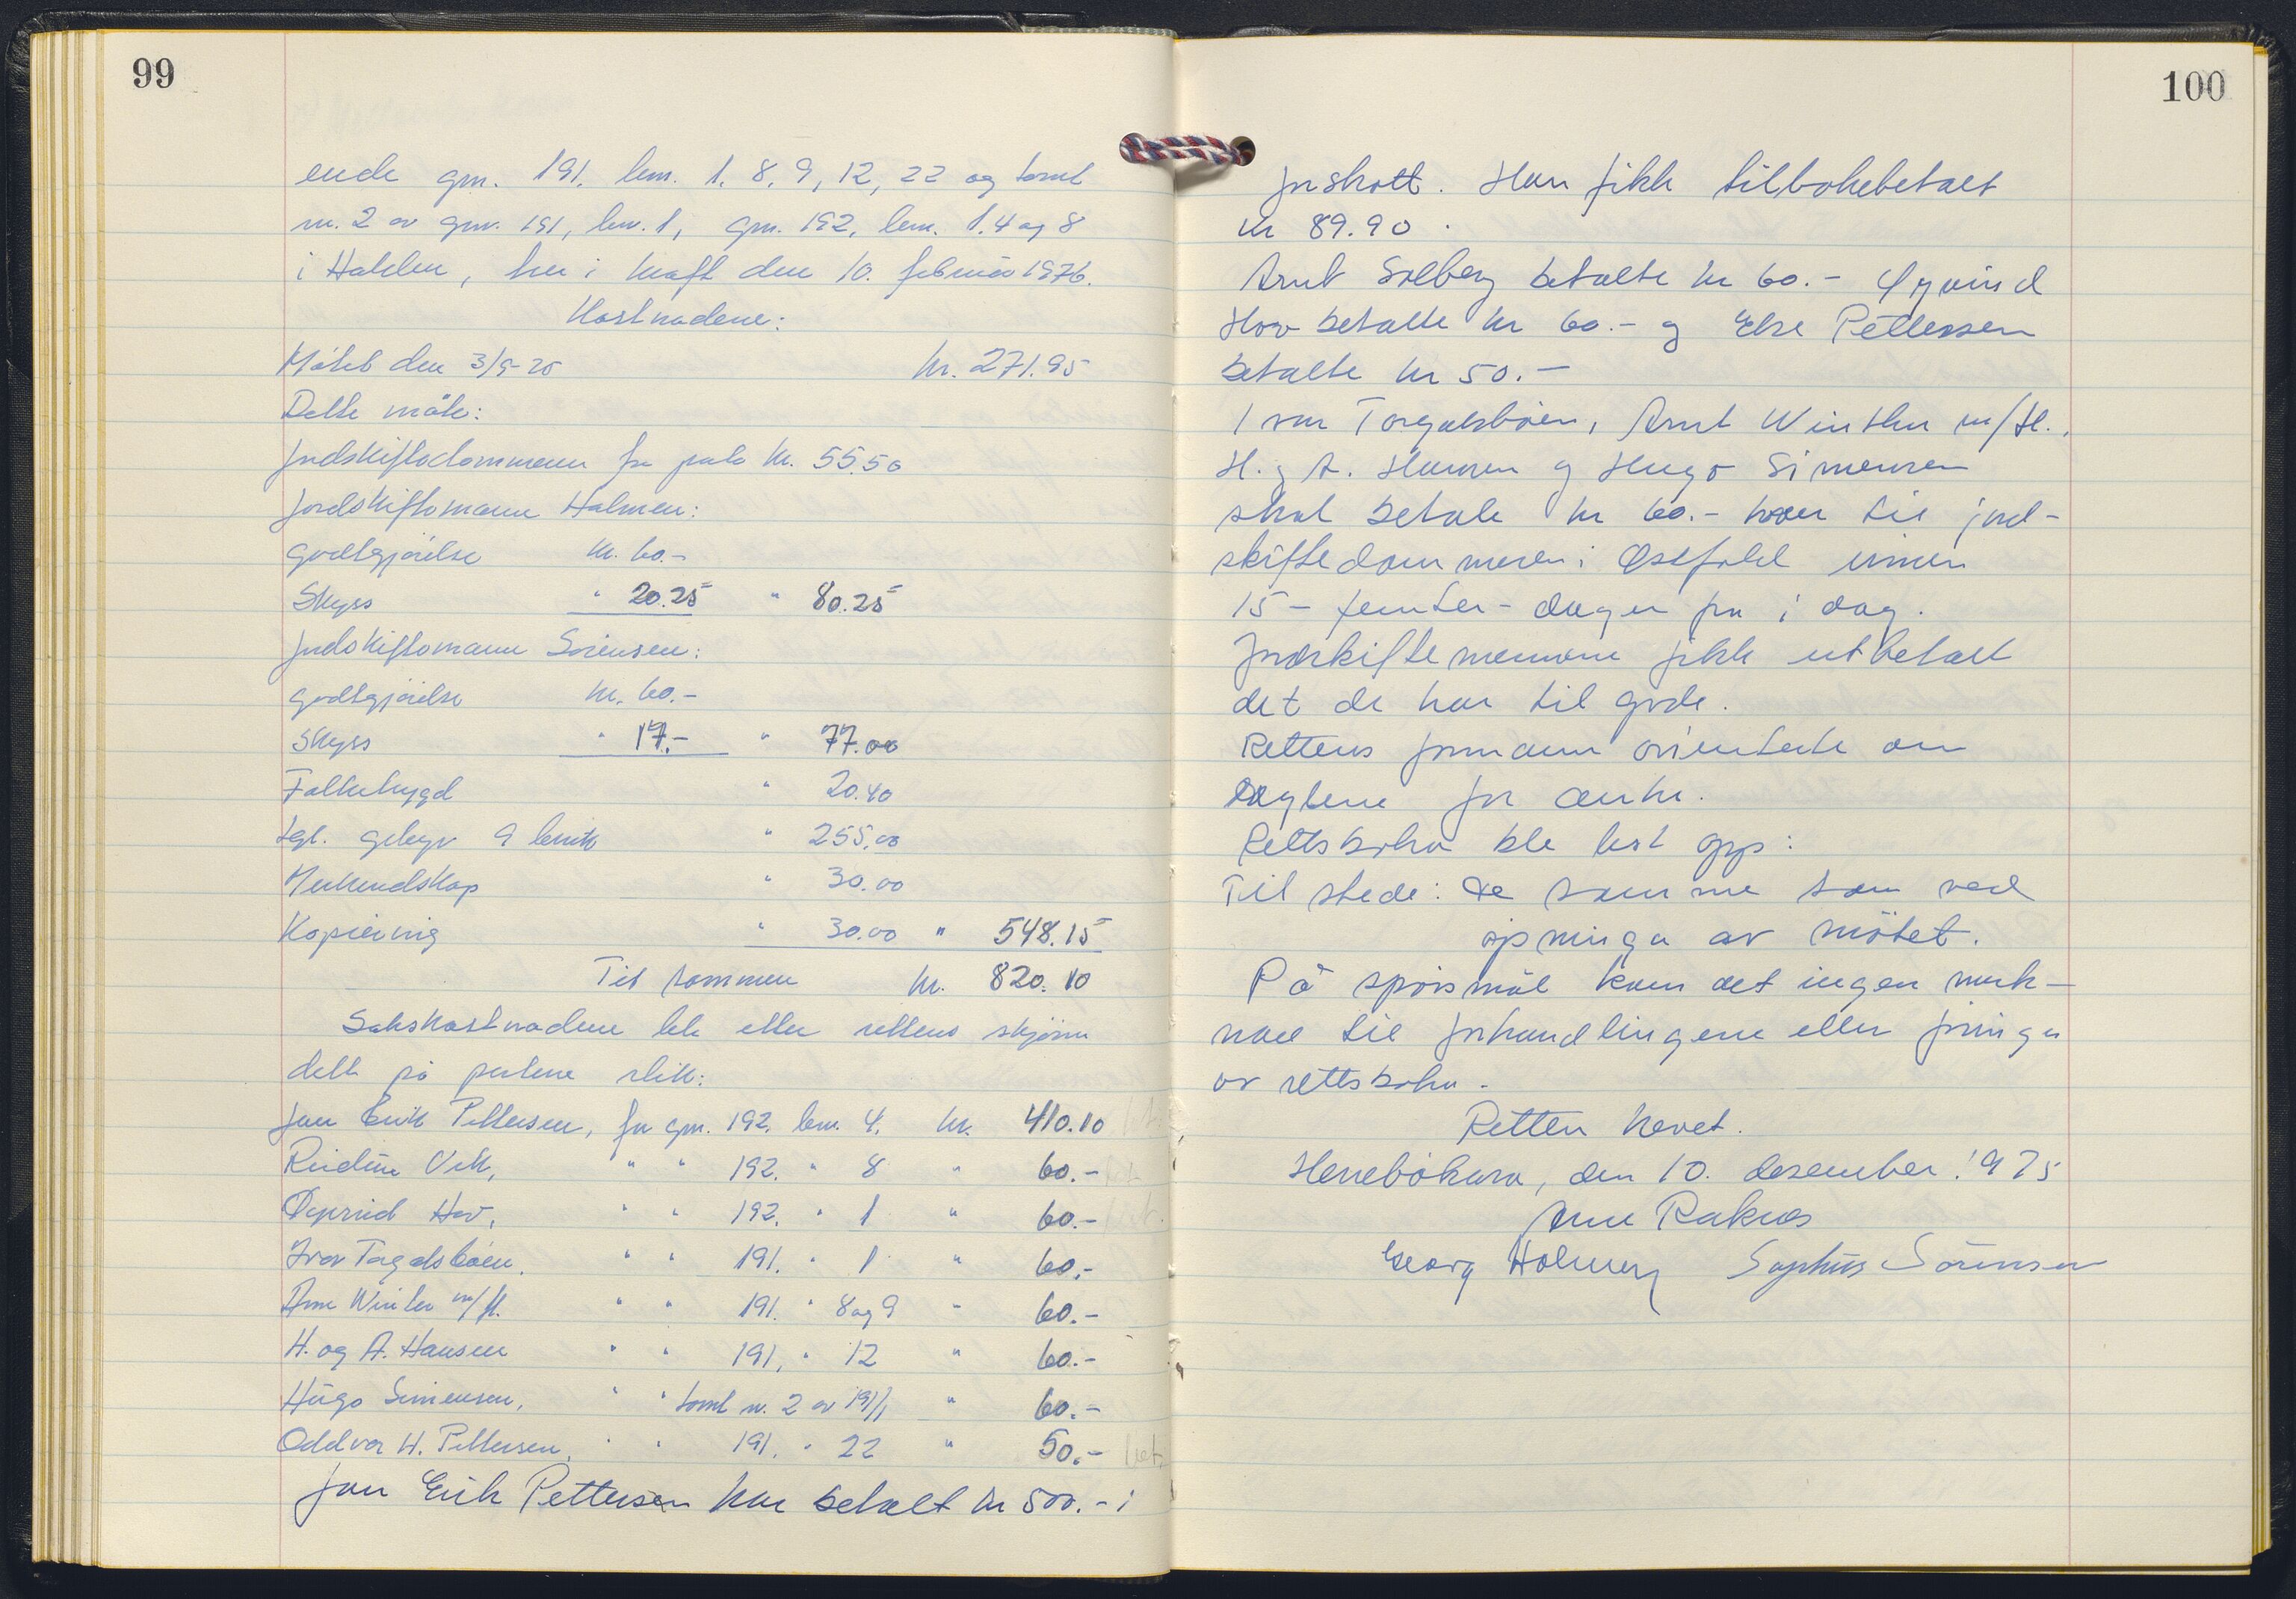 99
ende gnr. 191. bnr. 1. 8. 9, 12, 22 og tomt
nr. 2 av gnr. 191, bnr. 1, gnr. 192, bnr. 1. 4 og 8
i Halden, trer i kraft den 10. februar 1976.
Kostnadene:
Møtet den 3/9-75 kr. 271.95
Dette møte:
Jordskiftedommeren for porto kr. 55.50
Jordskiftemann Holmen:
godtgjørelse kr. 60.-
Skyss " 20.25 " 80.25
Jordskiftemann Sørensen:
godtgjørelse kr. 60.-
Skyss " 17.- " 77.00
Folketrygd " 20.40
tgl. gebyr 9 bruk " 255.00
Merkundskap " 30.00
Kopiering " 30.00 " 548.15
Til sammen kr. 820.10
Sakskostnadene ble etter rettens skjønn
delt på partene slik:
Jan Erik Pettersen, for gnr. 192. bnr. 4. kr. 410.10
Reidun Vik, " " 192. " 8 " 60.-
Øyvind Hov, " " 192. " 1 " 60.-
Ivar Torgalsbøen. " " 191. " 1 " 60.-
Arne Winter m/fl. " " 191. " 8 og 9 " 60.-
H. og A. Hansen " " 191. " 12 " 60.-
Hugo Simensen, " " tomt nr. 2 av 191/1 " 60.-
Oddvar H. Pettersen, " " 191. " 22 " 50.- bet.
Jan Erik Pettersen har betalt kr 500.- i
100
forskott. Han fikk tilbakebetalt
kr 89.90.
Arnt Solberg betalte kr 60.- Øyvind
Hov betalte kr 60.- og Else Pettersen
betalte kr 50.-
Ivar Torgalsbøen, Arnt Winther m/fl.,
H. og A. Hansen og Hugo Simensen
skal betale kr 60.- hver til jord-
skiftedommeren i Østfold innen
15 - femten - dager fra i dag.
Jordskiftemennene fikk utbetalt
det de har til gode.
Rettens formann orienterte om
reglene for anke.
Rettsboka ble lest opp:
Til stede: de samme som ved
åpninga av møtet.
På spørsmål kom det ingen merk-
nad til forhandlingene eller føringa
av rettsboka.
Retten hevet.
Herrebøkara, den 10. desember 1975
Arne Raknes
Georg Holmen Sophus Sørensen